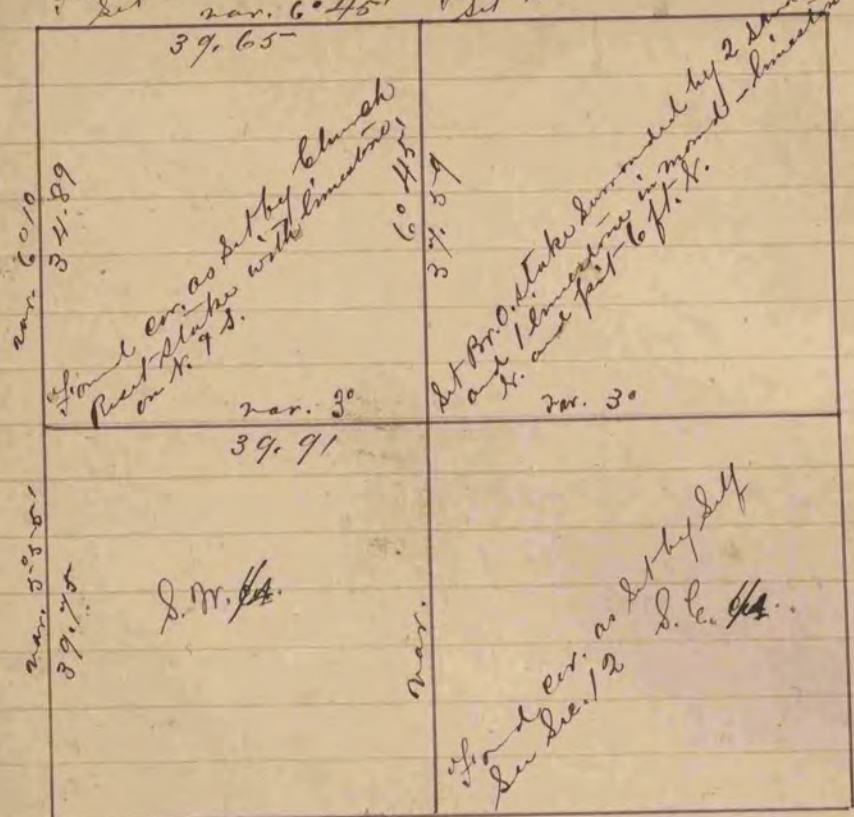 Set
var. 6° 45'
Set
39.65
var. 6° 10
34.89
Found cor. as Set by Church
Reset stake with limestone
on N. & S.
6° 45'
37.59
Set Br. O. stake surrounded by 2
and 1 limestone in mound - limestone
N. and pit 6 ft. N.
var. 3°
var. 3°
39.91
var. 5° 55'
39.75
S. W. 1/4.
var.
Found cor. as Set by Self
See Sec. 12
S. E. 1/4.